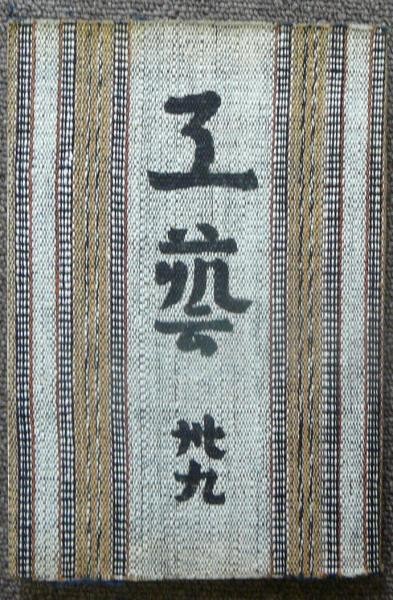 工
藝
卅
九